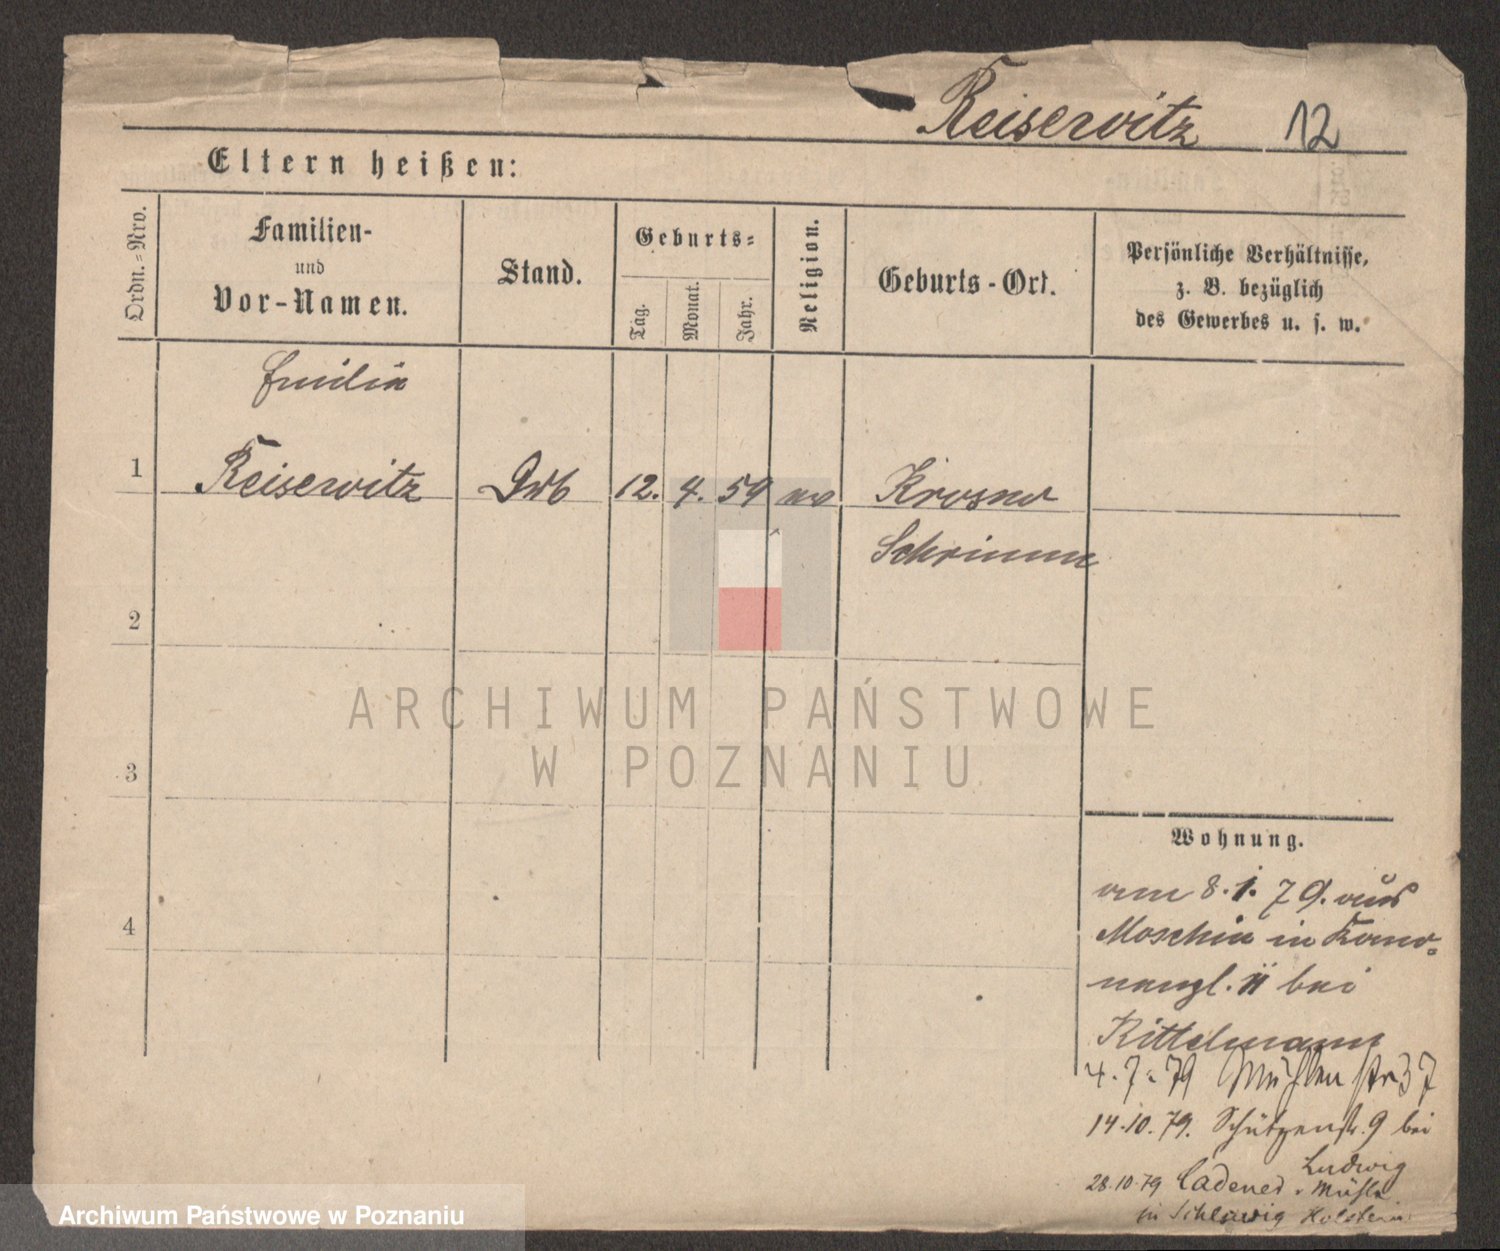 Reiserwitz 12
Eltern heißen:
Ordn.=Nro.
Familien-
und
Vor-Namen.
Stand.
Geburts=
Tag.
Monat.
Jahr.
Religion.
Geburts-Ort.
Persönliche Verhältnisse,
z. B. bezüglich
des Gewerbes u. s. w.
Emilia
1 Reiserwitz 12. 4. 54 Krosno
Schrimm
2
3
4
ARCHIWUM PAŃSTWOWE
W POZNANIU
Wohnung.
8. 1. 79. aus
Moschin in
II bei
Kittelmann
4.7.79 Mühlenstr 37
14.10.79. Schützenstr. 9 bei
Ludwig
28.10.79 Mühle
in Schleswig Holstein
Archiwum Państwowe w Poznaniu